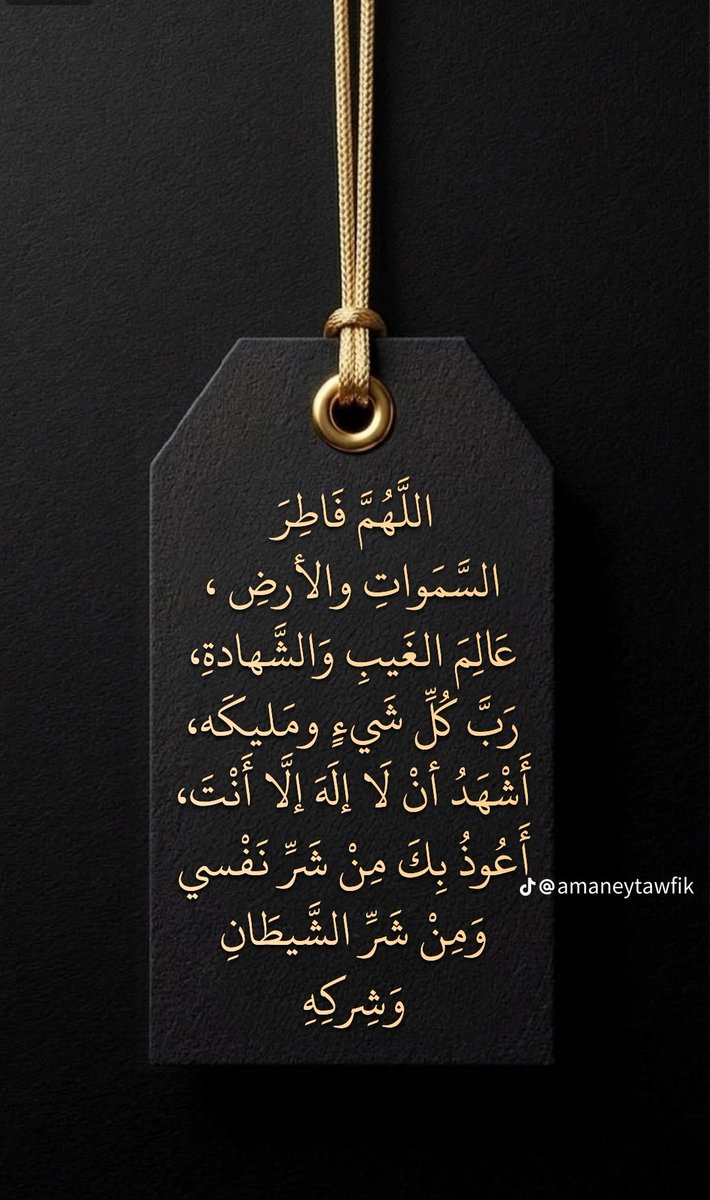 اللَّهُمَّ فَاطِرَ
السَّمَواتِ والأرضِ ،
عَالِمَ الغَيبِ وَالشَّهادةِ،
رَبَّ كُلِّ شَيءٍ ومَليكَه،
أَشْهَدُ أنْ لَا إلَهَ إلَّا أَنْتَ،
أَعُوذُ بِكَ مِنْ شَرِّ نَفْسي
@amaneytawfik
وَمِنْ شَرِّ الشَّيطَانِ
وَشِركِهِ